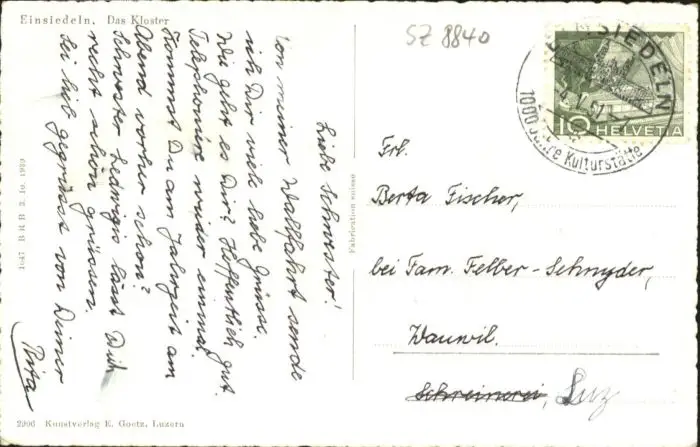 Einsiedeln, Das Kloster
SZ 8840
EINSIEDELN
1000 Jahre Kulturstätte
10 HELVETIA
Liebe Schwester!
Von meiner Wallfahrt sende
ich Dir viele liebe Grüsse.
Wie geht es Dir? Hoffentlich gut.
Telephoniere wieder einmal.
Kommst Du am Jahrzeit am
Abend vorher schon?
Schwester Ledwigis lässt Dich
recht schön grüssen.
Sei lieb gegrüsst von Deiner
Rita
1047 BRB 3. 10. 1939
Fabrication suisse
Frl.
Berta Fischer,
bei Fam. Felber-Schnyder,
Wauwil.
Schreinerei, Luz
2906 Kunstverlag E. Goetz, Luzern